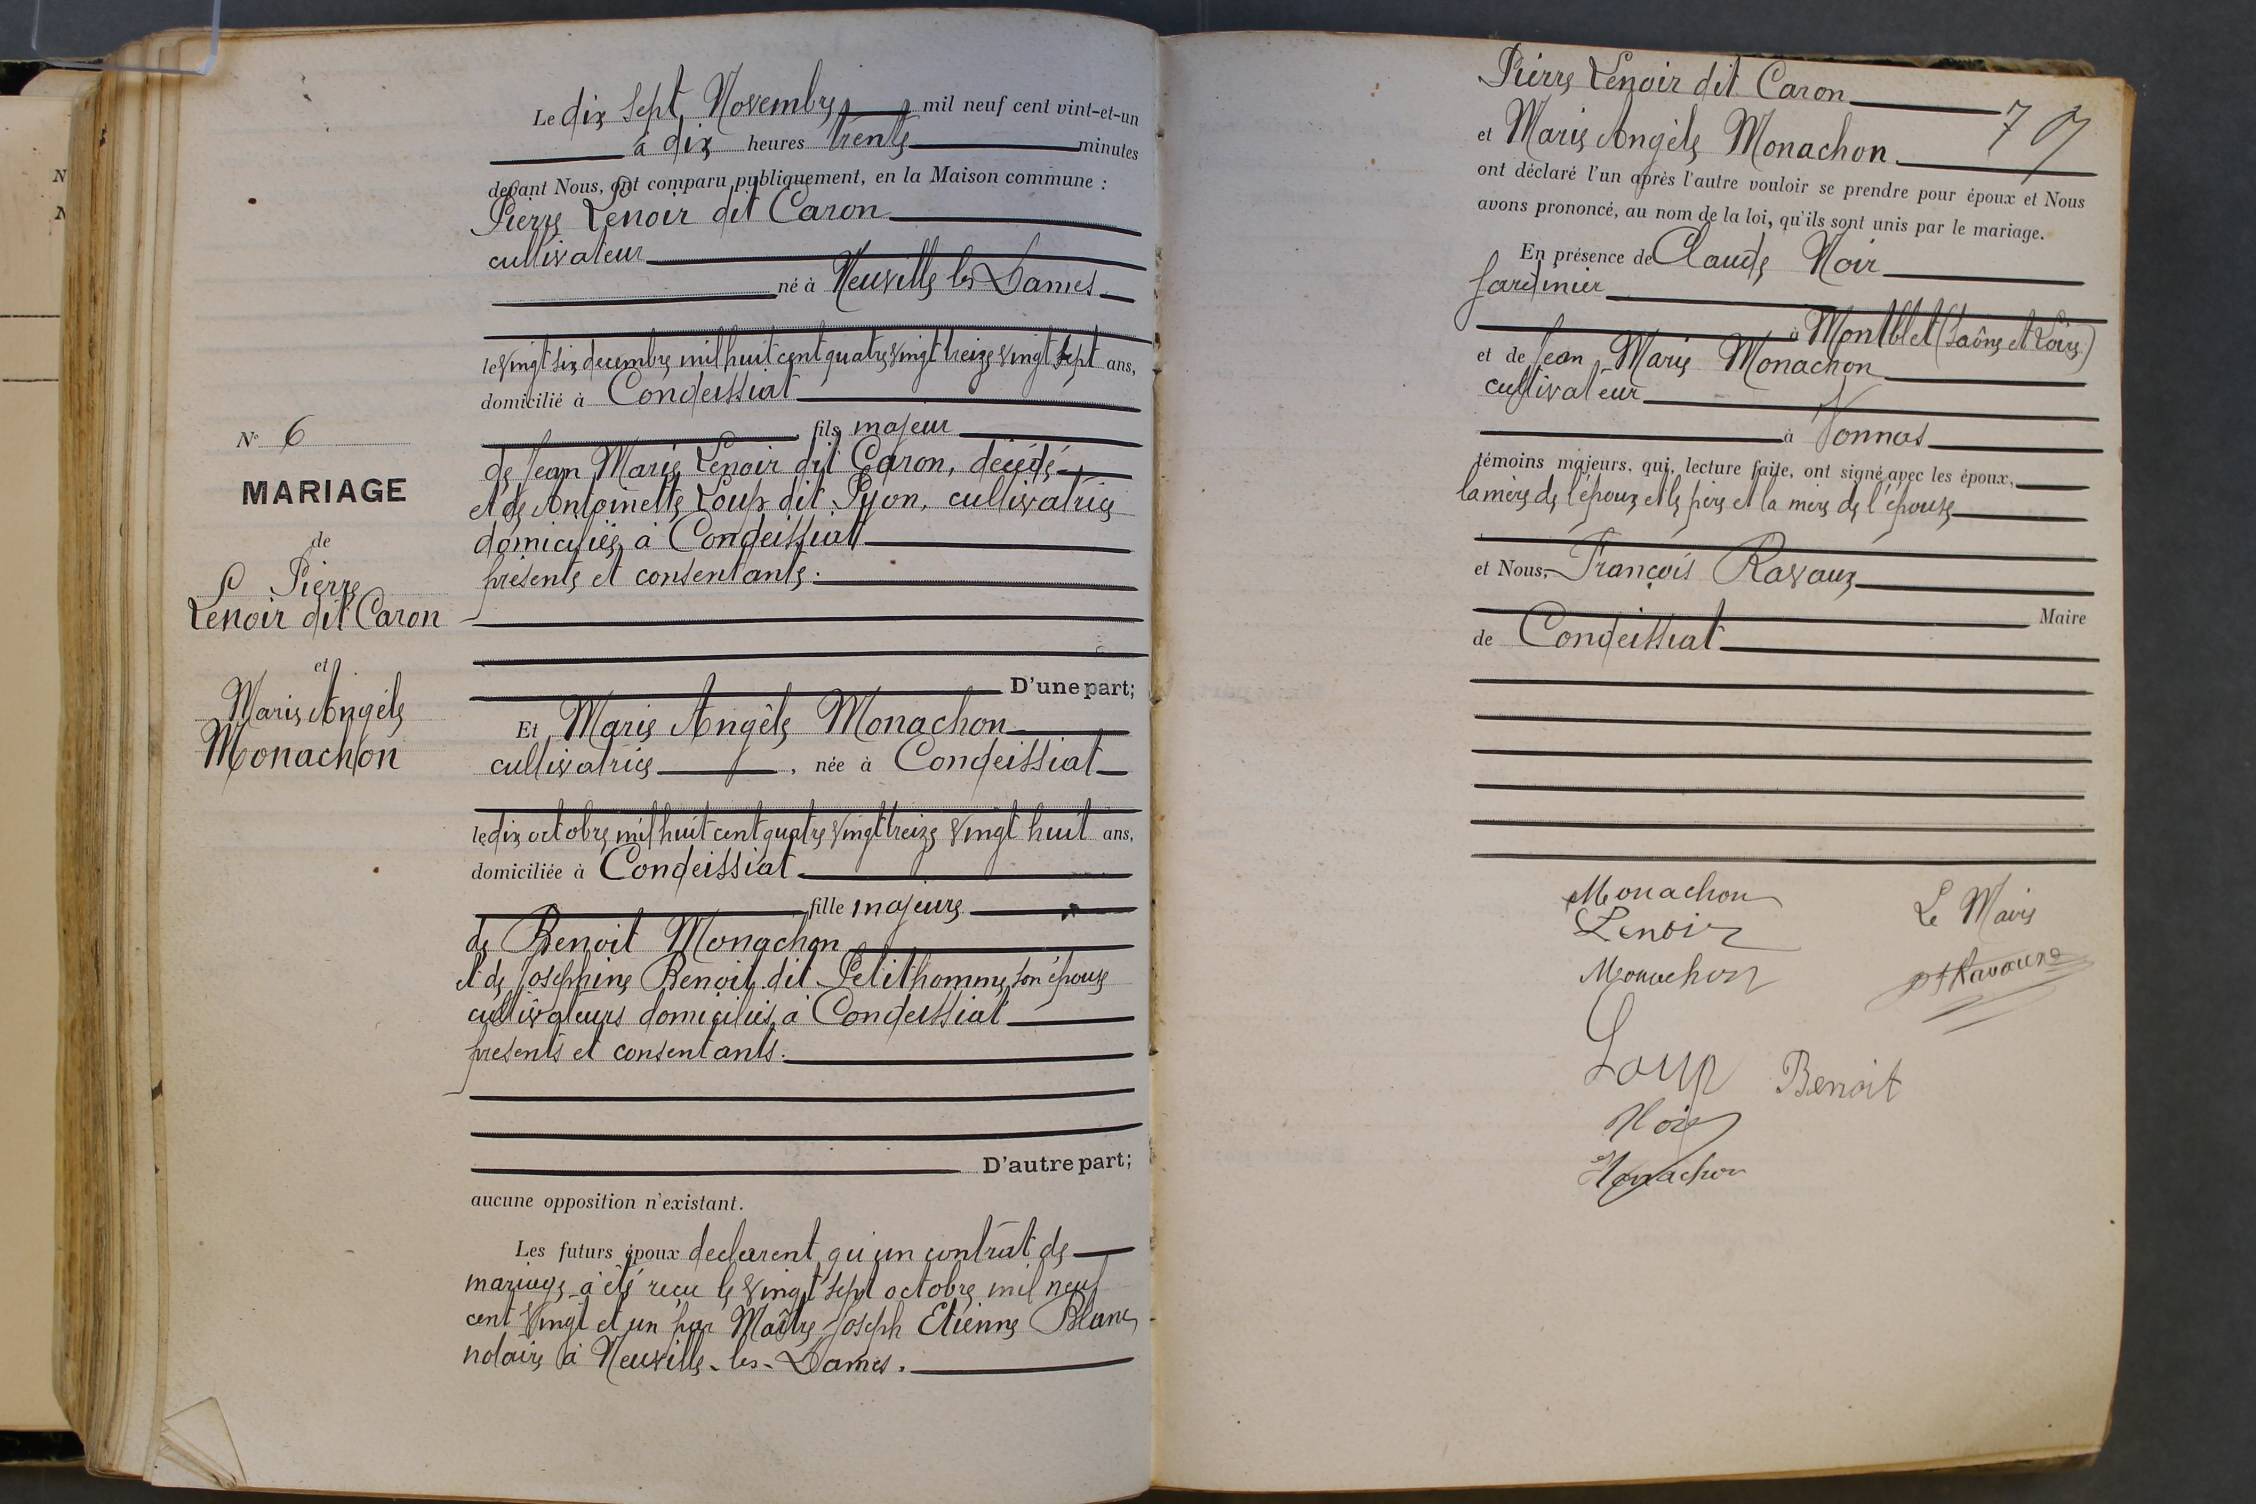 N
N
N° 6
MARIAGE
de
Pierre
Lenoir dit Caron
et
Marie Angèle
Monachon
Le dix sept Novembre mil neuf cent vint-et-un
à dix heures trente minutes
devant Nous, ont comparu publiquement, en la Maison commune :
Pierre Lenoir dit Caron
cultivateur
né à Neuville les Dames
le vingt six decembre mil huit cent quatre vingt treize vingt sept ans,
domicilié à Condeissiat
fils majeur
de Jean Marie Lenoir dit Caron, décédé
et de Antoinette Loup dit Pyon, cultivatrice
domiciliée à Condeissiat
présente et consentante.
D'une part;
Et Marie Angèle Monachon
cultivatrice, née à Condeissiat
le dix octobre mil huit cent quatre vingt treize vingt huit ans,
domiciliée à Condeissiat
fille majeure
de Benoit Monachon
et de Josephine Benoit dit Petithomme, son épouse
cultivateurs domiciliés à Condeissiat
presents et consentants.
D'autre part;
aucune opposition n'existant.
Les futurs époux declarent qu'un contrat de
mariage a été reçu le vingt sept octobre mil neuf
cent vingt et un par Maître Joseph Etienne Blanc
notaire à Neuville-les-Dames.
Pierre Lenoir dit Caron
et Marie Angèle Monachon
ont déclaré l'un après l'autre vouloir se prendre pour époux et Nous
avons prononcé, au nom de la loi, qu'ils sont unis par le mariage.
En présence de Claude Noir
Jardinier
à Montblet (Saône et Loire)
et de Jean Marie Monachon
cultivateur
à Vonnas
témoins majeurs, qui, lecture faite, ont signé avec les époux,
la mère de l'époux et le père et la mere de l'épouse
et Nous, François Ravaux
Maire
de Condeissiat
Monachon
Lenoir
Le Maire
Monachon
Loup
Benoit
Noir
Monachon